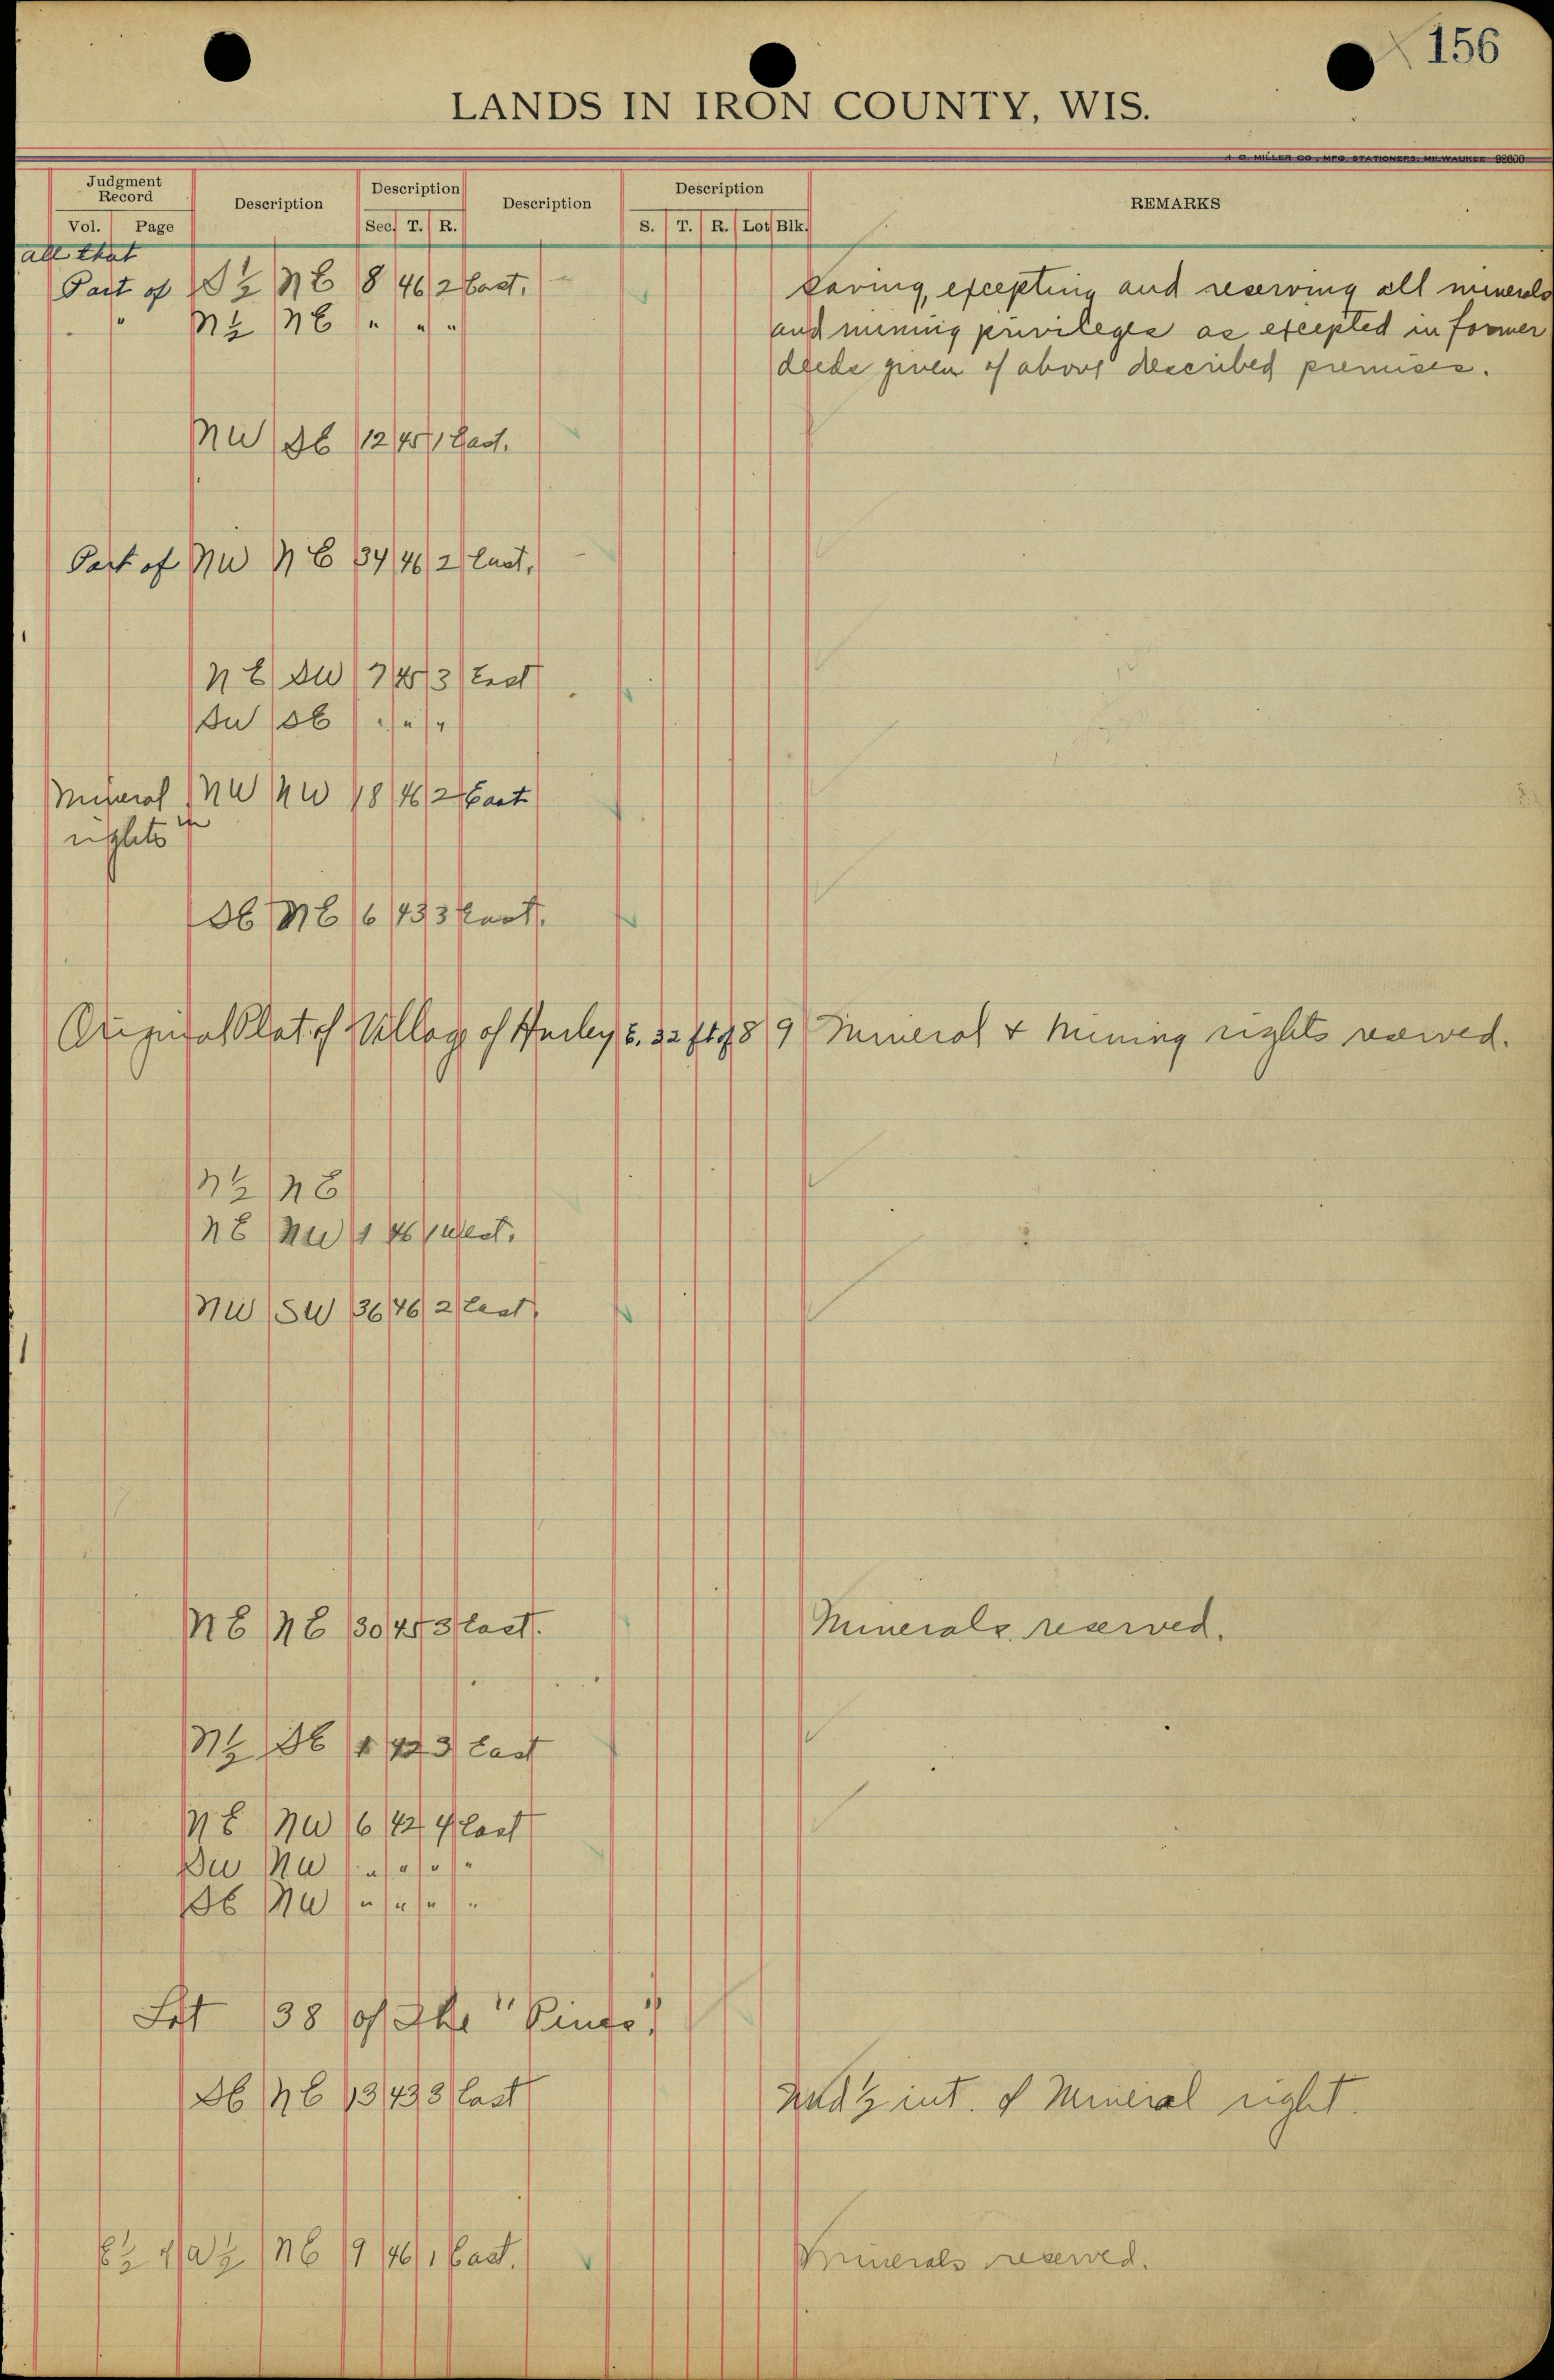 156
LANDS IN IRON COUNTY, WIS.
J. C. MILLER CO., MFG. STATIONERS, MILWAUKEE 98600
Judgment Record Description Description Description Description REMARKS
Vol. Page Sec. T. R. S. T. R. Lot Blk.
all that
Part of S½ NE 8 46 2 East. Saving, excepting and reserving all minerals
" N½ NE " " " and mining privileges as excepted in former
deeds given of above described premises.
NW SE 12 45 1 East.
Part of NW NE 34 46 2 East.
NE SW 7 45 3 East
SW SE " " "
Mineral NW NW 18 46 2 East
rights in
SE NE 6 43 3 East.
Original Plat of Village of Hurley E. 32 ft of 8 9 Mineral & Mining rights reserved.
N½ NE
NE NW 1 46 1 West.
NW SW 36 46 2 East.
NE NE 30 45 3 East. Minerals reserved.
N½ SE 1 42 3 East
NE NW 6 42 4 East
SW NW " " " "
SE NW " " " "
Lot 38 of The "Pines"
SE NE 13 43 3 East Und ½ int. of Mineral right.
E½ of W½ NE 9 46 1 East. Minerals reserved.